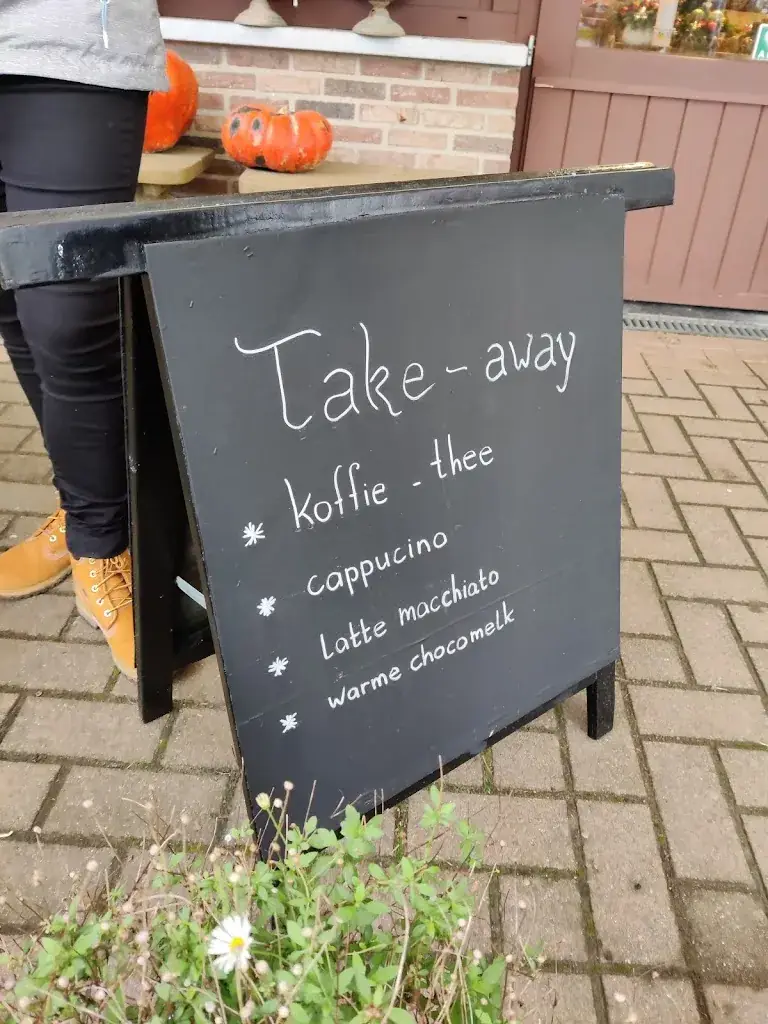 Take-away
* koffie - thee
* cappucino
* Latte macchiato
* warme chocomelk